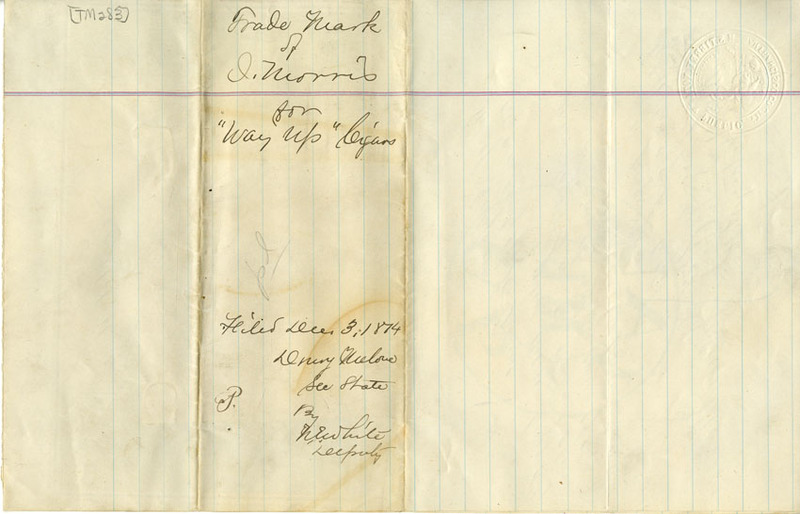 [TM283]
Trade Mark
of
I. Morris
for
"Way Up" Cigars
pd
Filed Dec. 3, 1874
Drury Melone
Sec State
By
White
Deputy